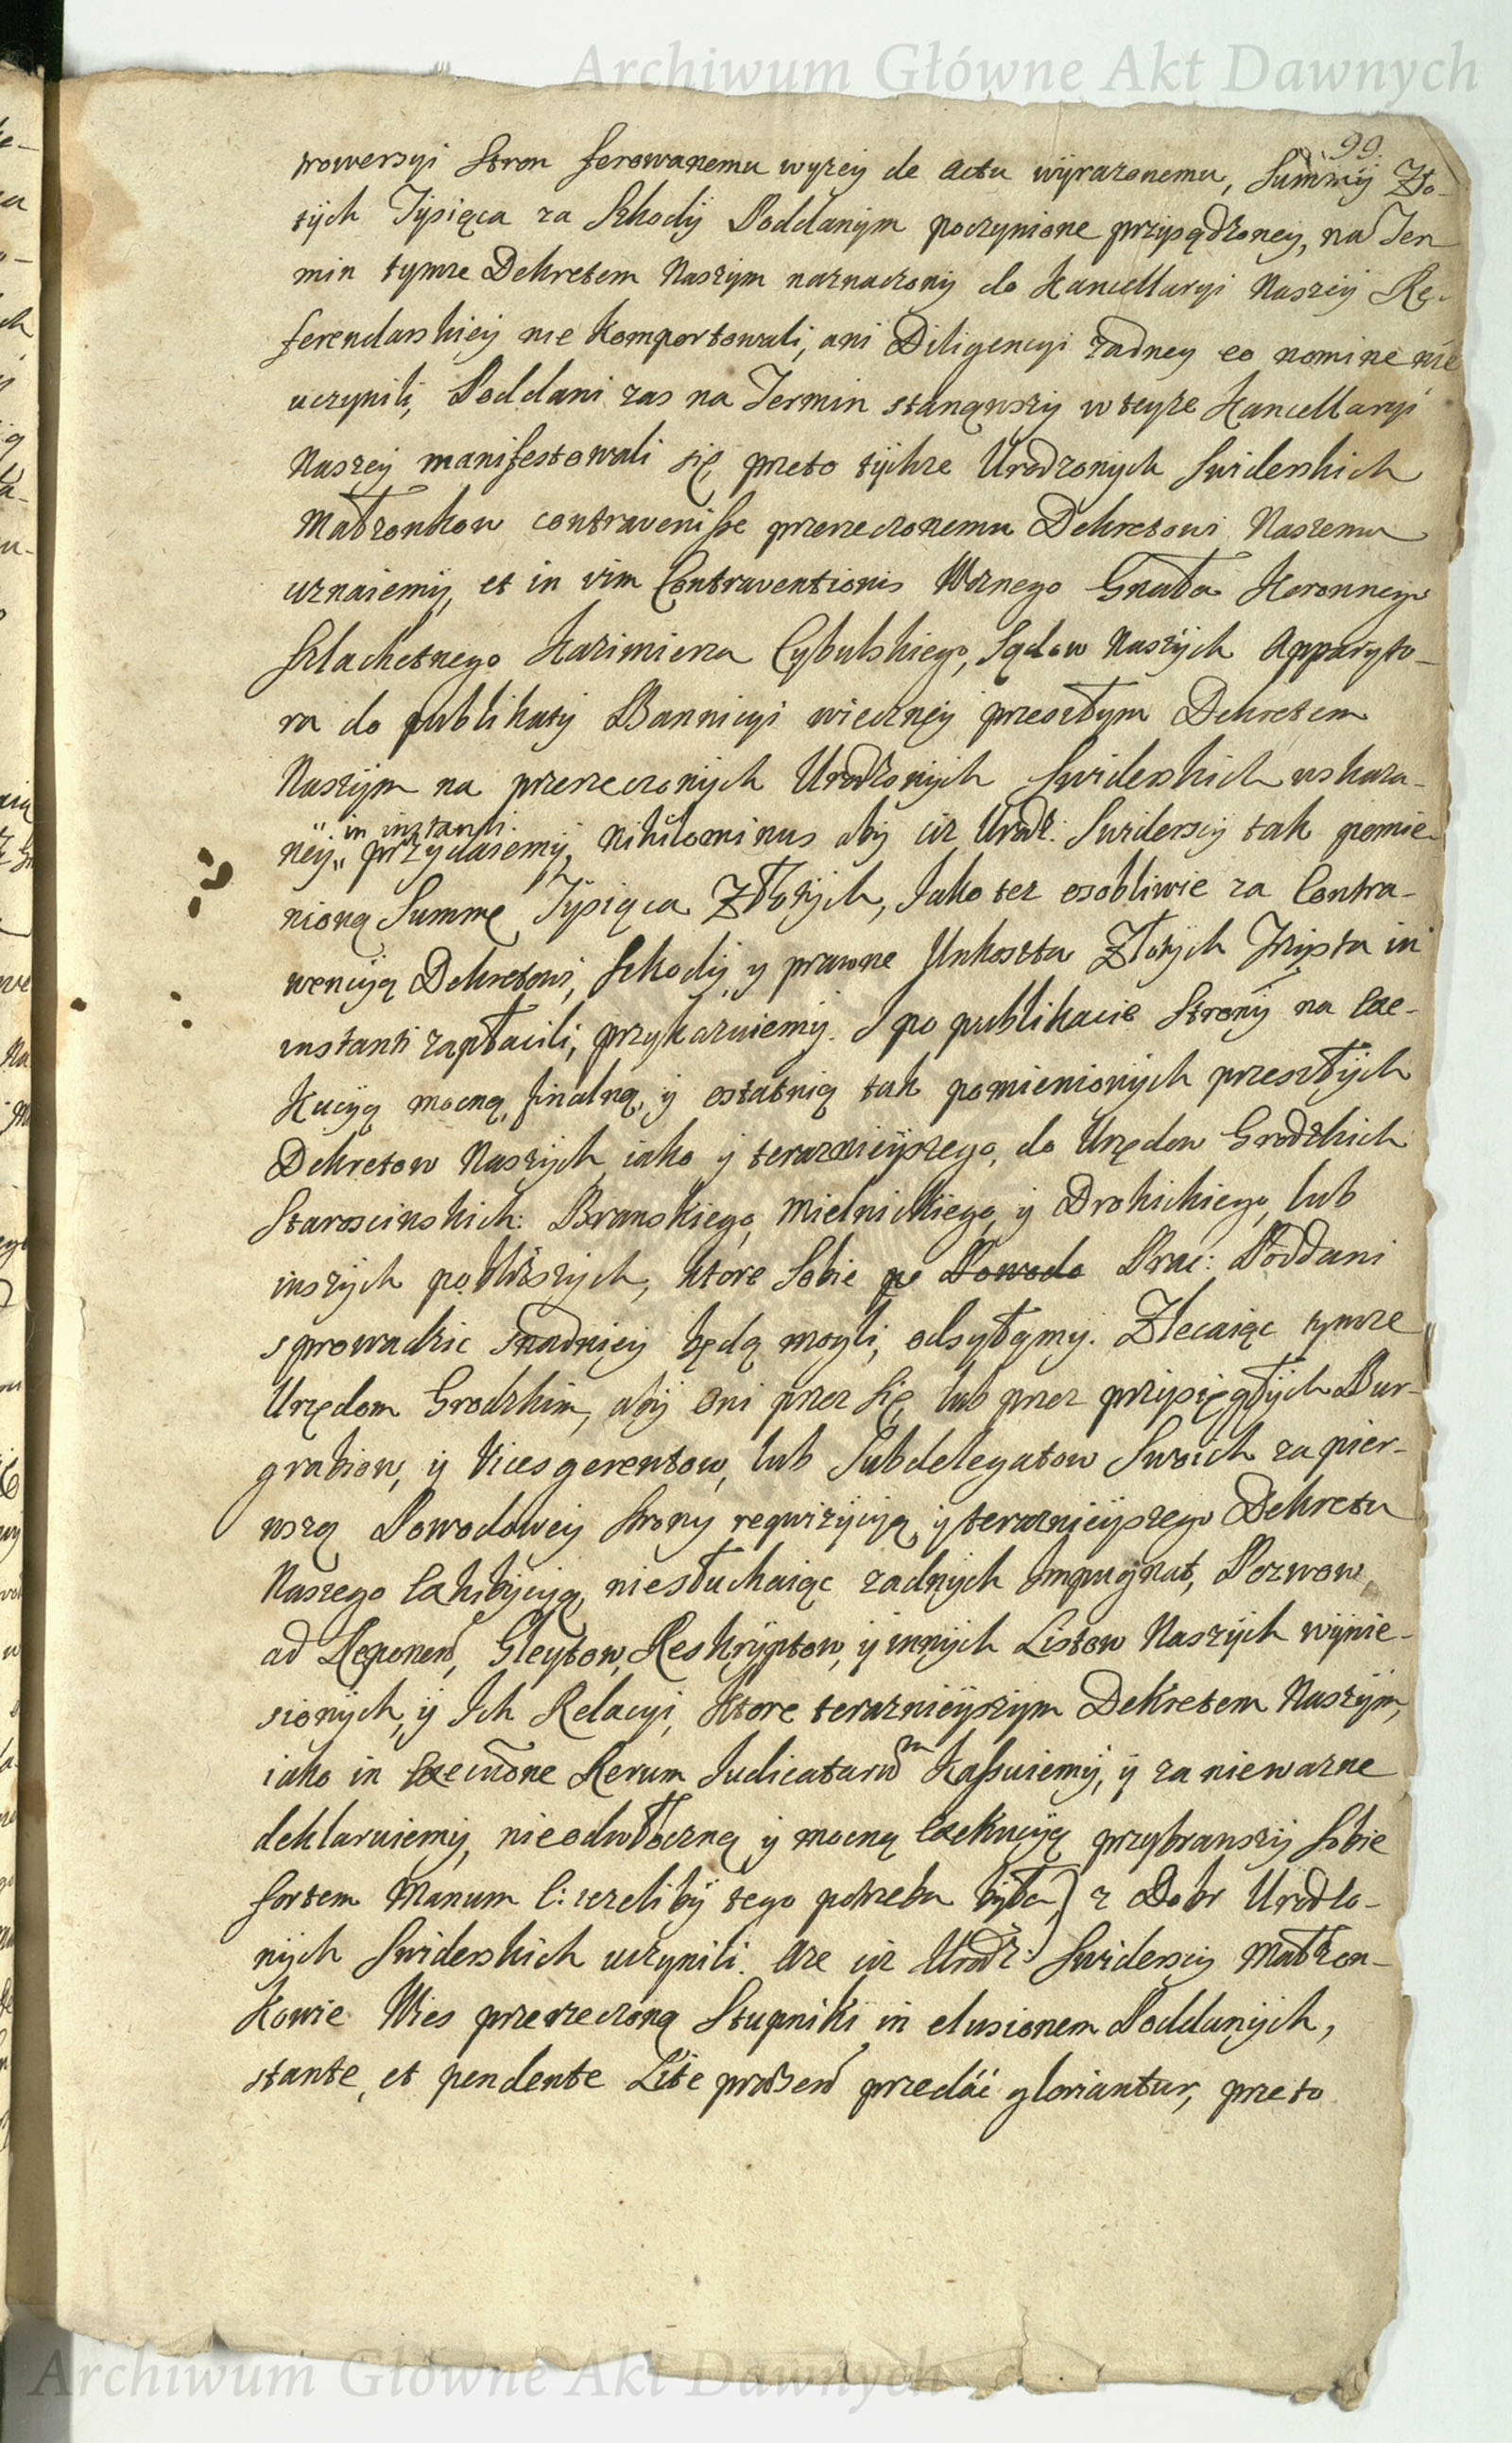 Archiwum Główne Akt Dawnych
99.
trowersyi Stron ferowanemu wyzey de Actu wÿrazonemu, Summÿ Zło-
tÿch Tysiąca za Szkodÿ Poddanÿm poczynione przysądzoney, na Ter
min tymze Dekretem Naszym naznaczonÿ do Kancellaryi Naszeÿ Re-
ferendarskieÿ nie komportowali, ani Diligencyi zadney eo nomine nie
uczynili, Poddani zas na Termin stanąwszÿ w teyze Kancellaryi
Naszeÿ manifestowali się, przeto tÿchze Urodzonych Swiderskich
Małzonkow contravenisse przerzeczonemu Dekretowi Naszemu
uznaiemÿ, et in vim Contraventionis Woznego Gnała Koronnego
Szlachetnego Kazimierza Cybulskiego, Sądow Naszÿch Apparyto-
ra do publikatÿ Bannicyi wieczneÿ przeszłym Dekretem
Naszÿm na przerzeczonÿch Urodzonÿch Swiderskich wskaza-
in instanti
neÿ przydaiemÿ, nihilominus abÿ ciz Urodz: Swiderscÿ tak pomie-
nioną Summę Tysiąca Złotÿch, Jako tez osobliwie za Contra-
wencÿą Dekretowi, Szkodÿ, y prawne Unkoszta Złotych Trzysta in
instanti zapłacili, przykazuiemÿ. I po publikacie Stronÿ na Exe-
kucyą mocną, finalną, ÿ ostatnią tak pomienionÿch przeszłÿch
Dekretow Naszÿch, iako ÿ teraznieÿszego, do Urzędow Grodzkich
Staroscinskich: Branskiego, Mielnickiego, ÿ Drohickiego, lub
inszÿch poblizszych, ktore Sobie po Powodo Prac: Poddani
sprowadzic snadnieÿ będą mogli, odsyłamy. Zlecaiąc tymze
Urzędom Grodzkim, abÿ oni przez się, lub przez przysięgłÿch Bur-
grabiow, ÿ Vicesgerentow, lub Subdelegatow Swoich za pier-
wszą Powodoweÿ Strony reqwizÿcyą, ÿ teraznieÿszego Dekretu
Naszego Exhibicyą, niesłuchaiąc zadnÿch Impugnat, Pozwow
ad Reponend, Gleytow, Reskryptow, ÿ innÿch Listow Naszÿch wÿnie-
sionÿch, ÿ Ich Relacyi, Ktore teraznieÿszym Dekretem Naszÿm,
iako in Execuõne Rerum Judicatarum Kassuiemÿ, ÿ za niewazne
deklaruiemÿ, nieodwłoczną ÿ mocną Exekucÿą przybrawszÿ Sobie
fortem Manum (: iezelibÿ tego potrzeba była,) z Dobr Urodzo-
nÿch Swiderskich uczynili. Aze ciz Urodz: Swiderscÿ Małzon-
kowie Wies przerzeczoną Stupniki in elusionem Poddanÿch,
stante, et pendente Lite przedać gloriantur, przeto
Archiwum Główne Akt Dawnych